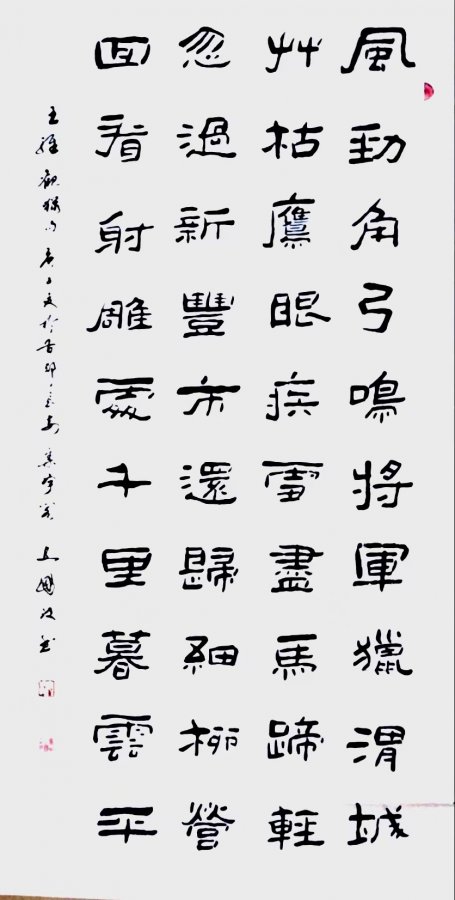 風勁角弓鳴將軍獵渭城
艸枯鷹眼疾雪盡馬蹄輕
忽過新豐市還歸細柳營
回看射雕處千里暮雲平
王維觀獵